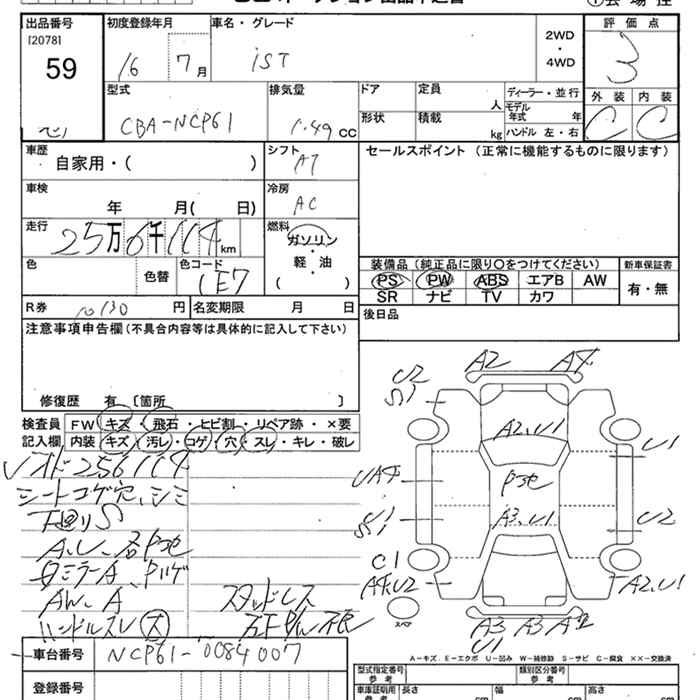 出品番号
[2078]
59
初度登録年月
16 7月
車名・グレード
iST
2WD
・
4WD
評価点
3
外装 内装
C C
型式
CBA-NCP61
排気量
1.49 CC
ドア
形状
定員
人
積載
kg
ディーラー・並行
モデル年式 年
ハンドル 左・右
車歴
自家用・( )
シフト
AT
セールスポイント (正常に機能するものに限ります)
車検
年 月( 日)
冷房
AC
走行
25万6千114km
燃料
ガソリン
・
軽・油
・
( )
色
色替
色コード
1E7
装備品 (純正品に限り○をつけてください)
PS PW ABS エアB AW
SR ナビ TV カワ
新車保証書
有・無
R券
10130円
名変期限 月 日
後日品
注意事項申告欄(不具合内容等は具体的に記入して下さい)
修復歴 有 〔箇所 〕
検査員記入欄
FW キズ・飛石・ヒビ割・リペア跡・×要
内装 キズ・汚レ・コゲ・穴・スレ・キレ・破レ
256114
シートコゲ穴、シミ
下廻りS
A、U、各P
ミラーA、Pハゲ
AW、A
ハンドルスレ 大
スタッドレス
A2 A4
U2
S1
A2、U1
U1
UA4
A3、U1
U1
S1
U2
C1
A4、U2
A2、U1
スペア
A3 A3 A
U1
A-キズ E-エクボ U-凹み W-補修跡 S-サビ C-腐食 ××-交換済
車台番号
NCP61-0084007
登録番号
型式指定番号
参考
類別区分番号
車庫証明用
参考
長さ
cm
幅
cm
高さ
cm